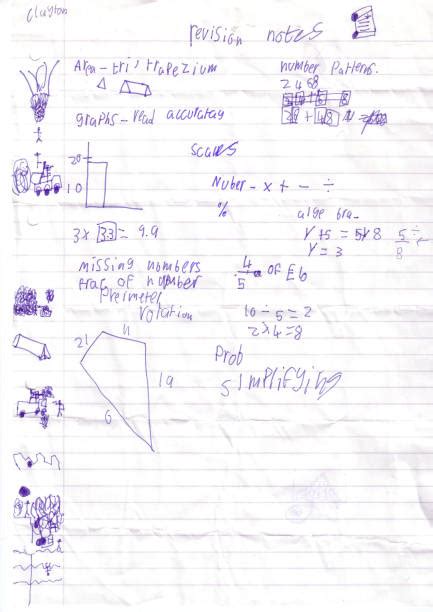 Clayton
revision notes
Area - tri / trapezium
number Patterns.
2 4 6 8
graphs - read accuratay
20
10
scares
Nuber - x + - ÷
%
alge bra -
Y + 5 = 8
Y = 3
5 ÷
8
3 x 3.3 = 9.9
missing numbers
frac of number
Preimeter
rotation
4/5 of £6
10 ÷ 5 = 2
2 x 4 = 8
21
11
19
6
Prob
simplifying